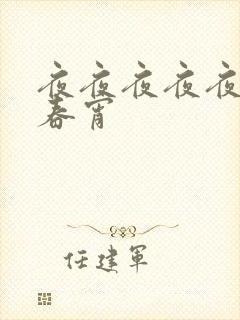 夜夜夜夜夜
春宵
任建军